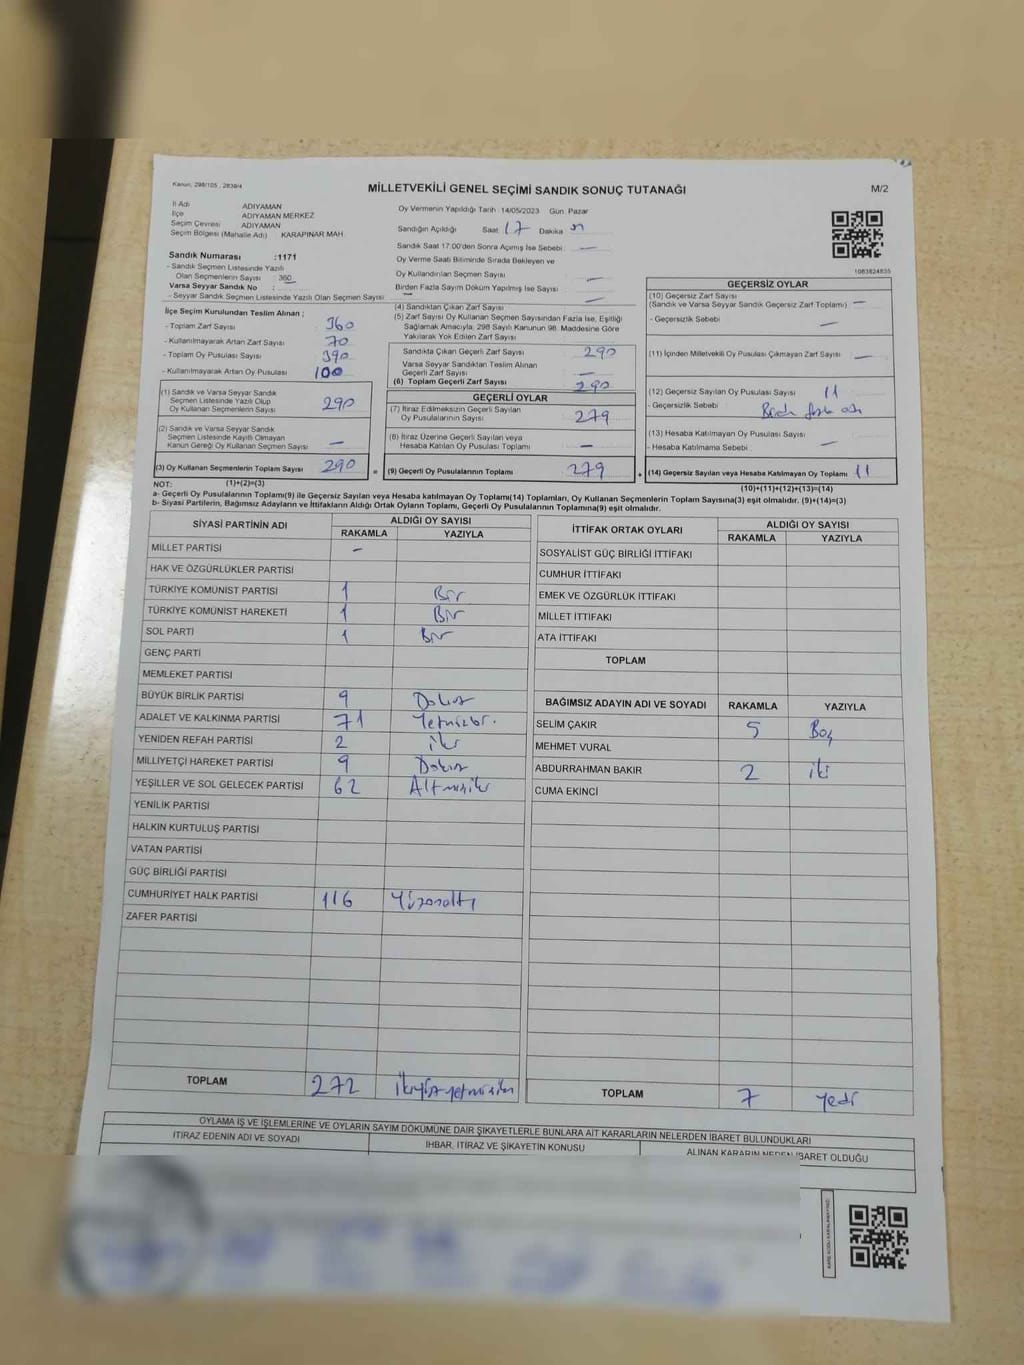 Kanun: 298/105 , 2839/4
MİLLETVEKİLİ GENEL SEÇİMİ SANDIK SONUÇ TUTANAĞI
M/2
İl Adı ADIYAMAN
İlçe ADIYAMAN MERKEZ
Seçim Çevresi ADIYAMAN
Seçim Bölgesi (Mahalle Adı) KARAPINAR MAH.
Oy Vermenin Yapıldığı Tarih :14/05/2023 Gün: Pazar
Sandığın Açıldığı Saat 17 Dakika
Sandık Saat 17:00'den Sonra Açımış İse Sebebi: —
Oy Verme Saati Bitiminde Sırada Bekleyen ve
Oy Kullandırılan Seçmen Sayısı —
Birden Fazla Sayım Döküm Yapılmış İse Sayısı —
1083824835
Sandık Numarası :1171
- Sandık Seçmen Listesinde Yazılı
Olan Seçmenlerin Sayısı : 360
Varsa Seyyar Sandık No : —
- Seyyar Sandık Seçmen Listesinde Yazılı Olan Seçmen Sayısı
İlçe Seçim Kurulundan Teslim Alınan ;
- Toplam Zarf Sayısı 360
- Kullanılmayarak Artan Zarf Sayısı 70
- Toplam Oy Pusulası Sayısı 390
- Kullanılmayarak Artan Oy Pusulası 100
(1) Sandık ve Varsa Seyyar Sandık
Seçmen Listesinde Yazılı Olup
Oy Kullanan Seçmenlerin Sayısı 290
(2) Sandık ve Varsa Seyyar Sandık
Seçmen Listesinde Kayıtlı Olmayan
Kanun Gereği Oy Kullanan Seçmen Sayısı —
(3) Oy Kullanan Seçmenlerin Toplam Sayısı 290
(1)+(2)=(3)
(4) Sandıktan Çıkan Zarf Sayısı
(5) Zarf Sayısı Oy Kullanan Seçmen Sayısından Fazla İse, Eşitliği
Sağlamak Amacıyla, 298 Sayılı Kanunun 98. Maddesine Göre
Yakılarak Yok Edilen Zarf Sayısı
Sandıkta Çıkan Geçerli Zarf Sayısı 290
Varsa Seyyar Sandıktan Teslim Alınan
Geçerli Zarf Sayısı —
(6) Toplam Geçerli Zarf Sayısı 290
GEÇERLİ OYLAR
(7) İtiraz Edilmeksizin Geçerli Sayılan
Oy Pusulalarının Sayısı 279
(8) İtiraz Üzerine Geçerli Sayılan veya
Hesaba Katılan Oy Pusulası Toplamı —
= (9) Geçerli Oy Pusulalarının Toplamı 279
GEÇERSİZ OYLAR
(10) Geçersiz Zarf Sayısı
(Sandık ve Varsa Seyyar Sandık Geçersiz Zarf Toplamı) —
- Geçersizlik Sebebi —
(11) İçinden Milletvekili Oy Pusulası Çıkmayan Zarf Sayısı —
(12) Geçersiz Sayılan Oy Pusulası Sayısı 11
- Geçersizlik Sebebi
(13) Hesaba Katılmayan Oy Pusulası Sayısı
- Hesaba Katılmama Sebebi —
+ (14) Geçersiz Sayılan veya Hesaba Katılmayan Oy Toplamı 11
(10)+(11)+(12)+(13)=(14)
NOT:
a- Geçerli Oy Pusulalarının Toplamı(9) ile Geçersiz Sayılan veya Hesaba katılmayan Oy Toplamı(14) Toplamları, Oy Kullanan Seçmenlerin Toplam Sayısına(3) eşit olmalıdır. (9)+(14)=(3)
b- Siyasi Partilerin, Bağımsız Adayların ve İttifakların Aldığı Ortak Oyların Toplamı, Geçerli Oy Pusulalarının Toplamına(9) eşit olmalıdır.
SİYASİ PARTİNİN ADI ALDIĞI OY SAYISI
RAKAMLA YAZIYLA
MİLLET PARTİSİ –
HAK VE ÖZGÜRLÜKLER PARTİSİ
TÜRKİYE KOMÜNİST PARTİSİ 1 Bir
TÜRKİYE KOMÜNİST HAREKETİ 1 Bir
SOL PARTİ 1 Bir
GENÇ PARTİ
MEMLEKET PARTİSİ
BÜYÜK BİRLİK PARTİSİ 9 Dokuz
ADALET VE KALKINMA PARTİSİ 71 Yetmişbir.
YENİDEN REFAH PARTİSİ 2 iki
MİLLİYETÇİ HAREKET PARTİSİ 9 Dokuz
YEŞİLLER VE SOL GELECEK PARTİSİ 62 Altmışiki
YENİLİK PARTİSİ
HALKIN KURTULUŞ PARTİSİ
VATAN PARTİSİ
GÜÇ BİRLİĞİ PARTİSİ
CUMHURİYET HALK PARTİSİ 116 Yüzonaltı
ZAFER PARTİSİ
TOPLAM 272 ikiyüzyetmişiki
İTTİFAK ORTAK OYLARI ALDIĞI OY SAYISI
RAKAMLA YAZIYLA
SOSYALİST GÜÇ BİRLİĞİ İTTİFAKI
CUMHUR İTTİFAKI
EMEK VE ÖZGÜRLÜK İTTİFAKI
MİLLET İTTİFAKI
ATA İTTİFAKI
TOPLAM
BAĞIMSIZ ADAYIN ADI VE SOYADI RAKAMLA YAZIYLA
SELİM ÇAKIR 5 Beş
MEHMET VURAL
ABDURRAHMAN BAKIR 2 iki
CUMA EKİNCİ
TOPLAM 7 yedi
OYLAMA İŞ VE İŞLEMLERİNE VE OYLARIN SAYIM DÖKÜMÜNE DAİR ŞİKAYETLERLE BUNLARA AİT KARARLARIN NELERDEN İBARET BULUNDUKLARI
İTİRAZ EDENİN ADI VE SOYADI İHBAR, İTİRAZ VE ŞİKAYETİN KONUSU ALINAN KARARIN NEDEN İBARET OLDUĞU